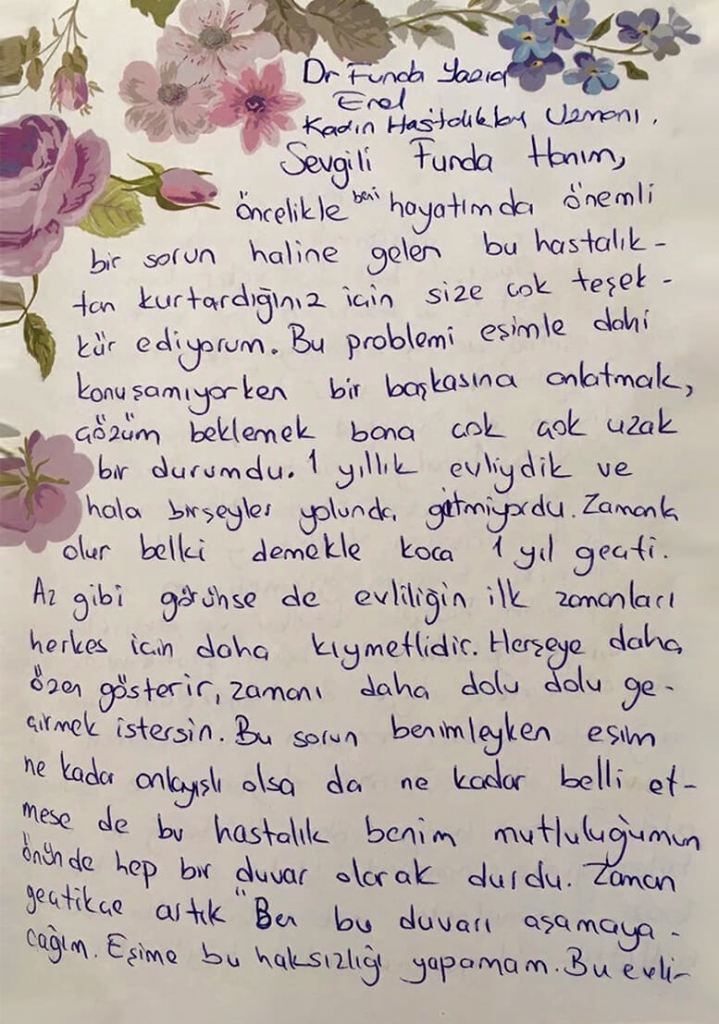 Dr Funda Yazıcı
Erol
Kadın Hastalıkları Uzmanı.
Sevgili Funda Hanım,
öncelikle beni hayatımda önemli
bir sorun haline gelen bu hastalık-
tan kurtardığınız için size çok teşek-
kür ediyorum. Bu problemi eşimle dahi
konuşamıyorken bir başkasına anlatmak,
çözüm beklemek bana çok çok uzak
bir durumdu. 1 yıllık evliydik ve
hala birşeyler yolunda gitmiyordu. Zamanla
olur belki demekle koca 1 yıl geçti.
Az gibi görünse de evliliğin ilk zamanları
herkes için daha kıymetlidir. Herşeye daha
özen gösterir, zamanı daha dolu dolu ge-
çirmek istersin. Bu sorun benimleyken eşim
ne kadar anlayışlı olsa da ne kadar belli et-
mese de bu hastalık benim mutluluğumun
önünde hep bir duvar olarak durdu. Zaman
geçtikçe artık "Ben bu duvarı aşamaya-
cağım. Eşime bu haksızlığı yapamam. Bu evli-